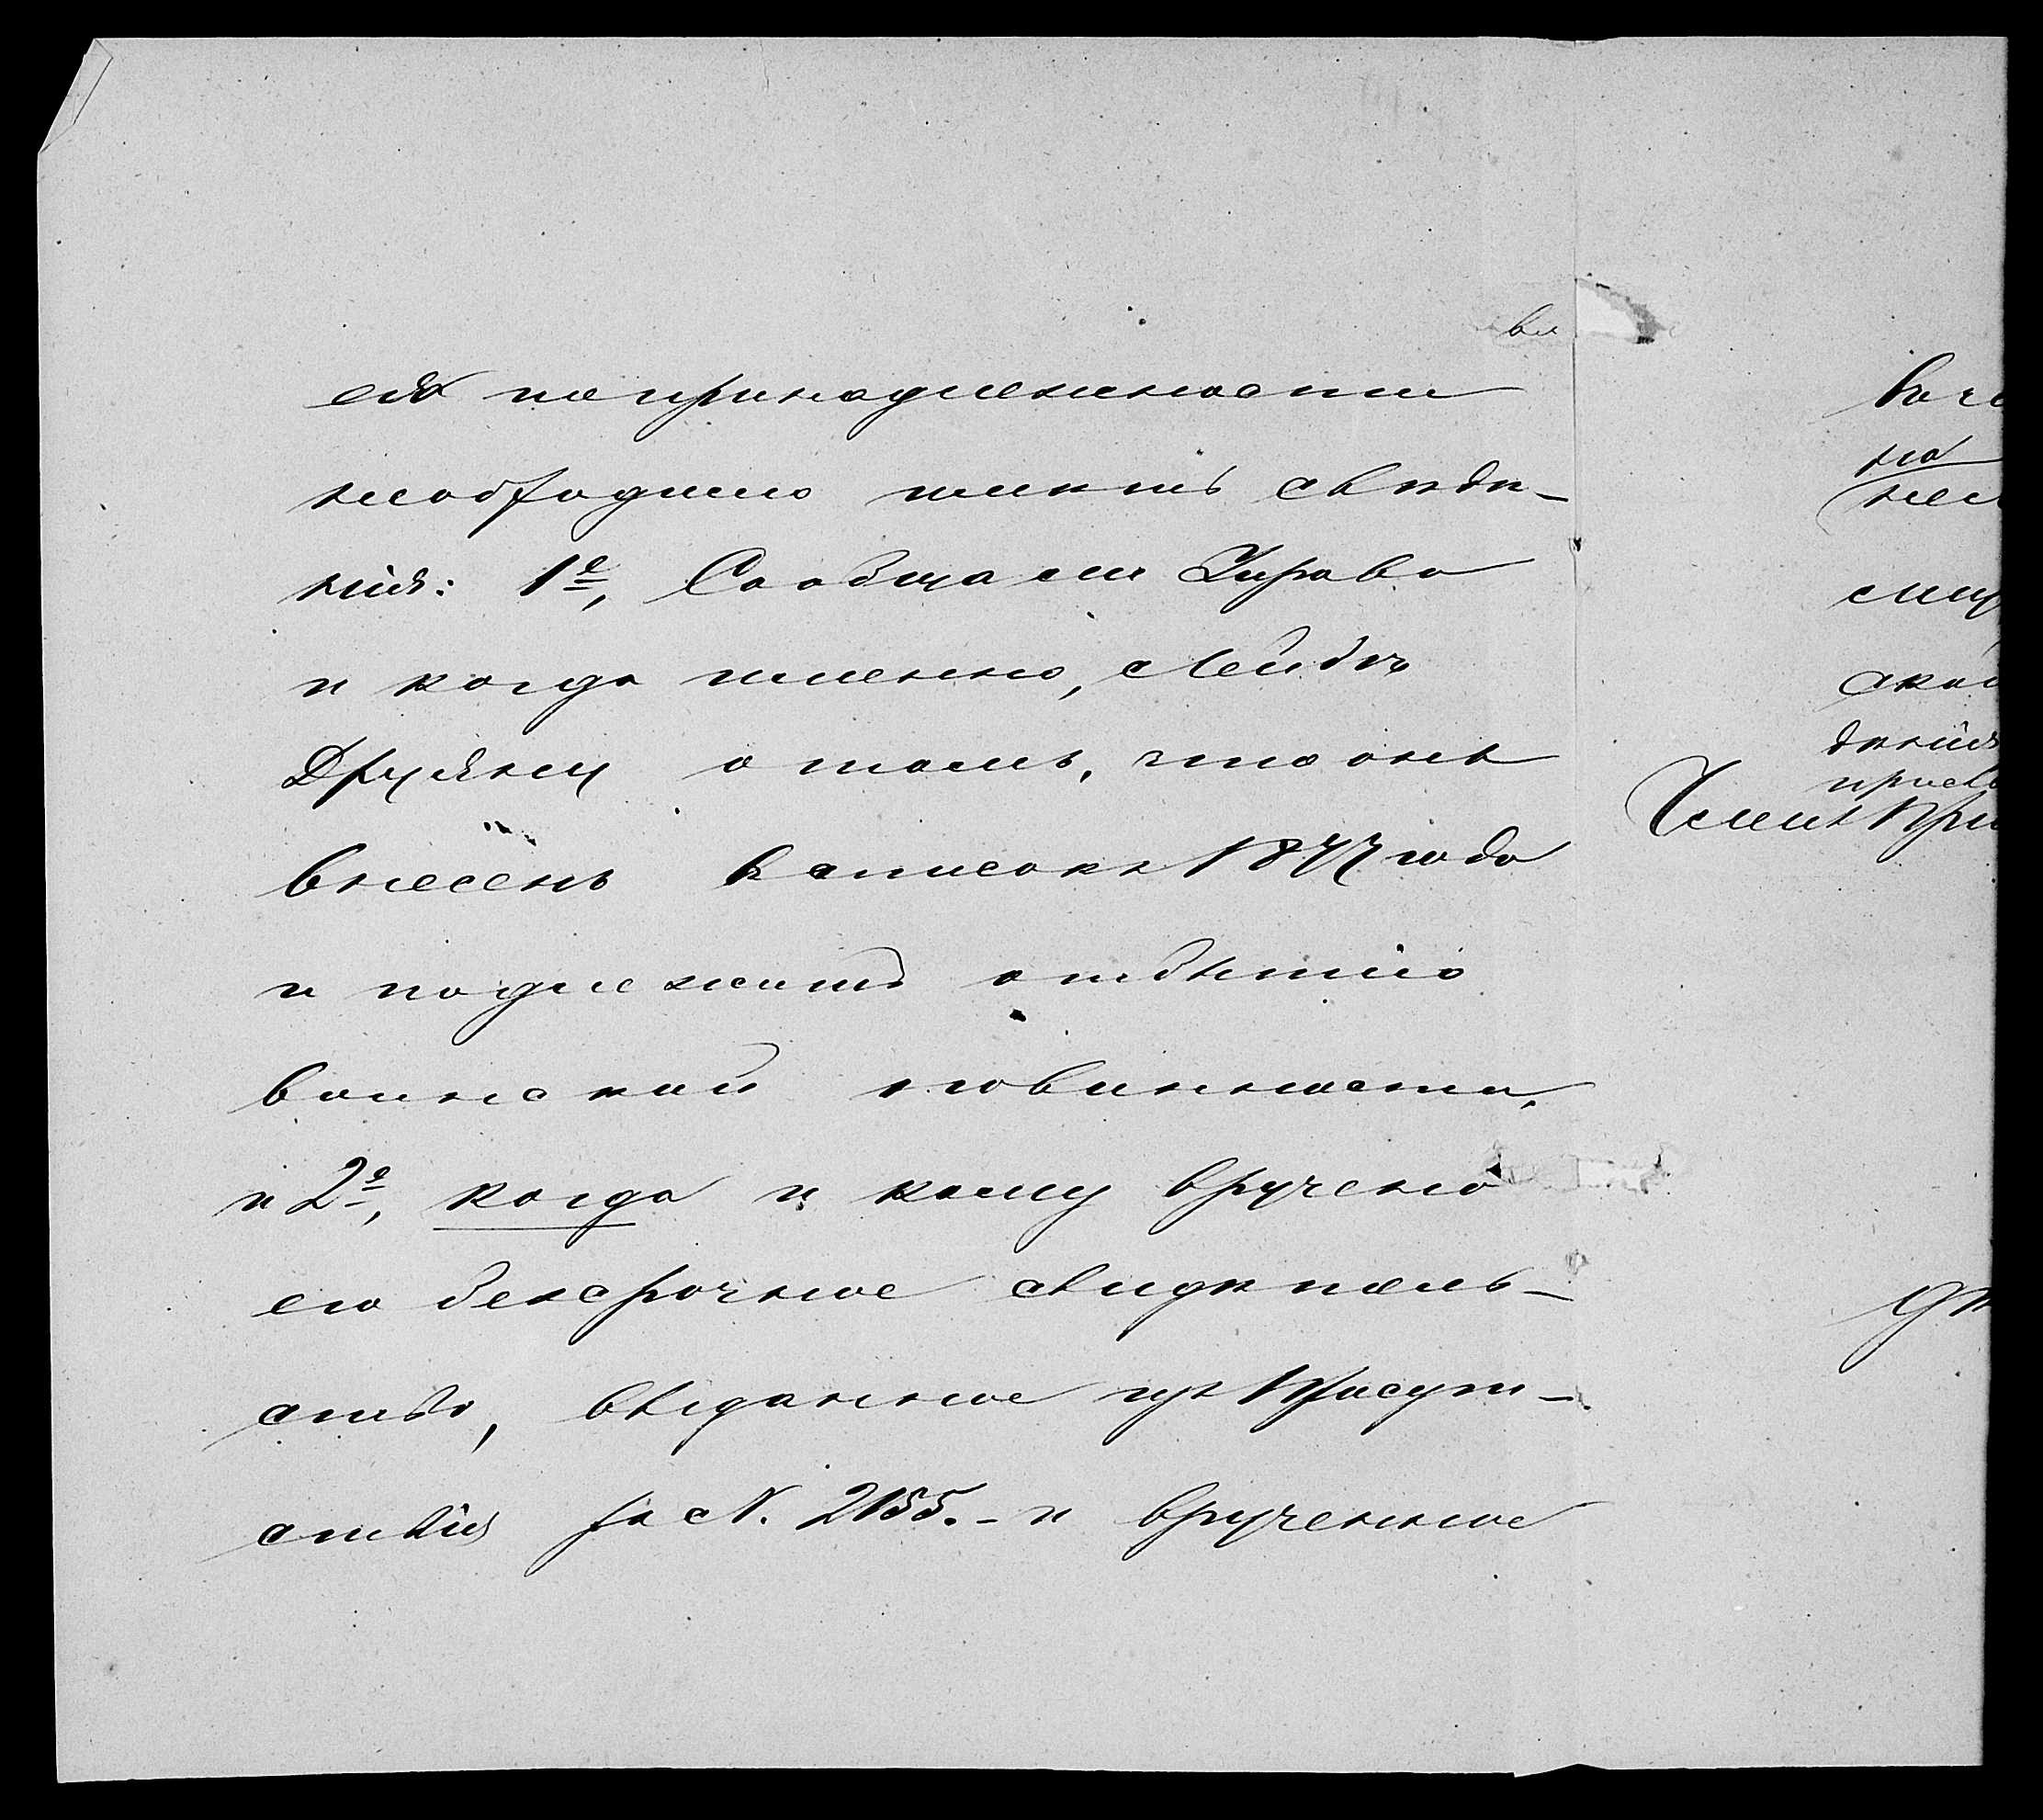 ея по принадлежности
необходимо имѣть свѣдѣ-
нія: 1е, Сообщала ли Управа
и когда именно, Лейбѣ
Друяну о томъ, что онъ
внесенъ въ списокъ 1877 года
и подлежитъ отбытію
воинской повинности,
и 2е, когда и кому вручено
его безсрочное свидѣтель-
ство, выданное изъ Присут-
ствія за N. 2155. - и врученное